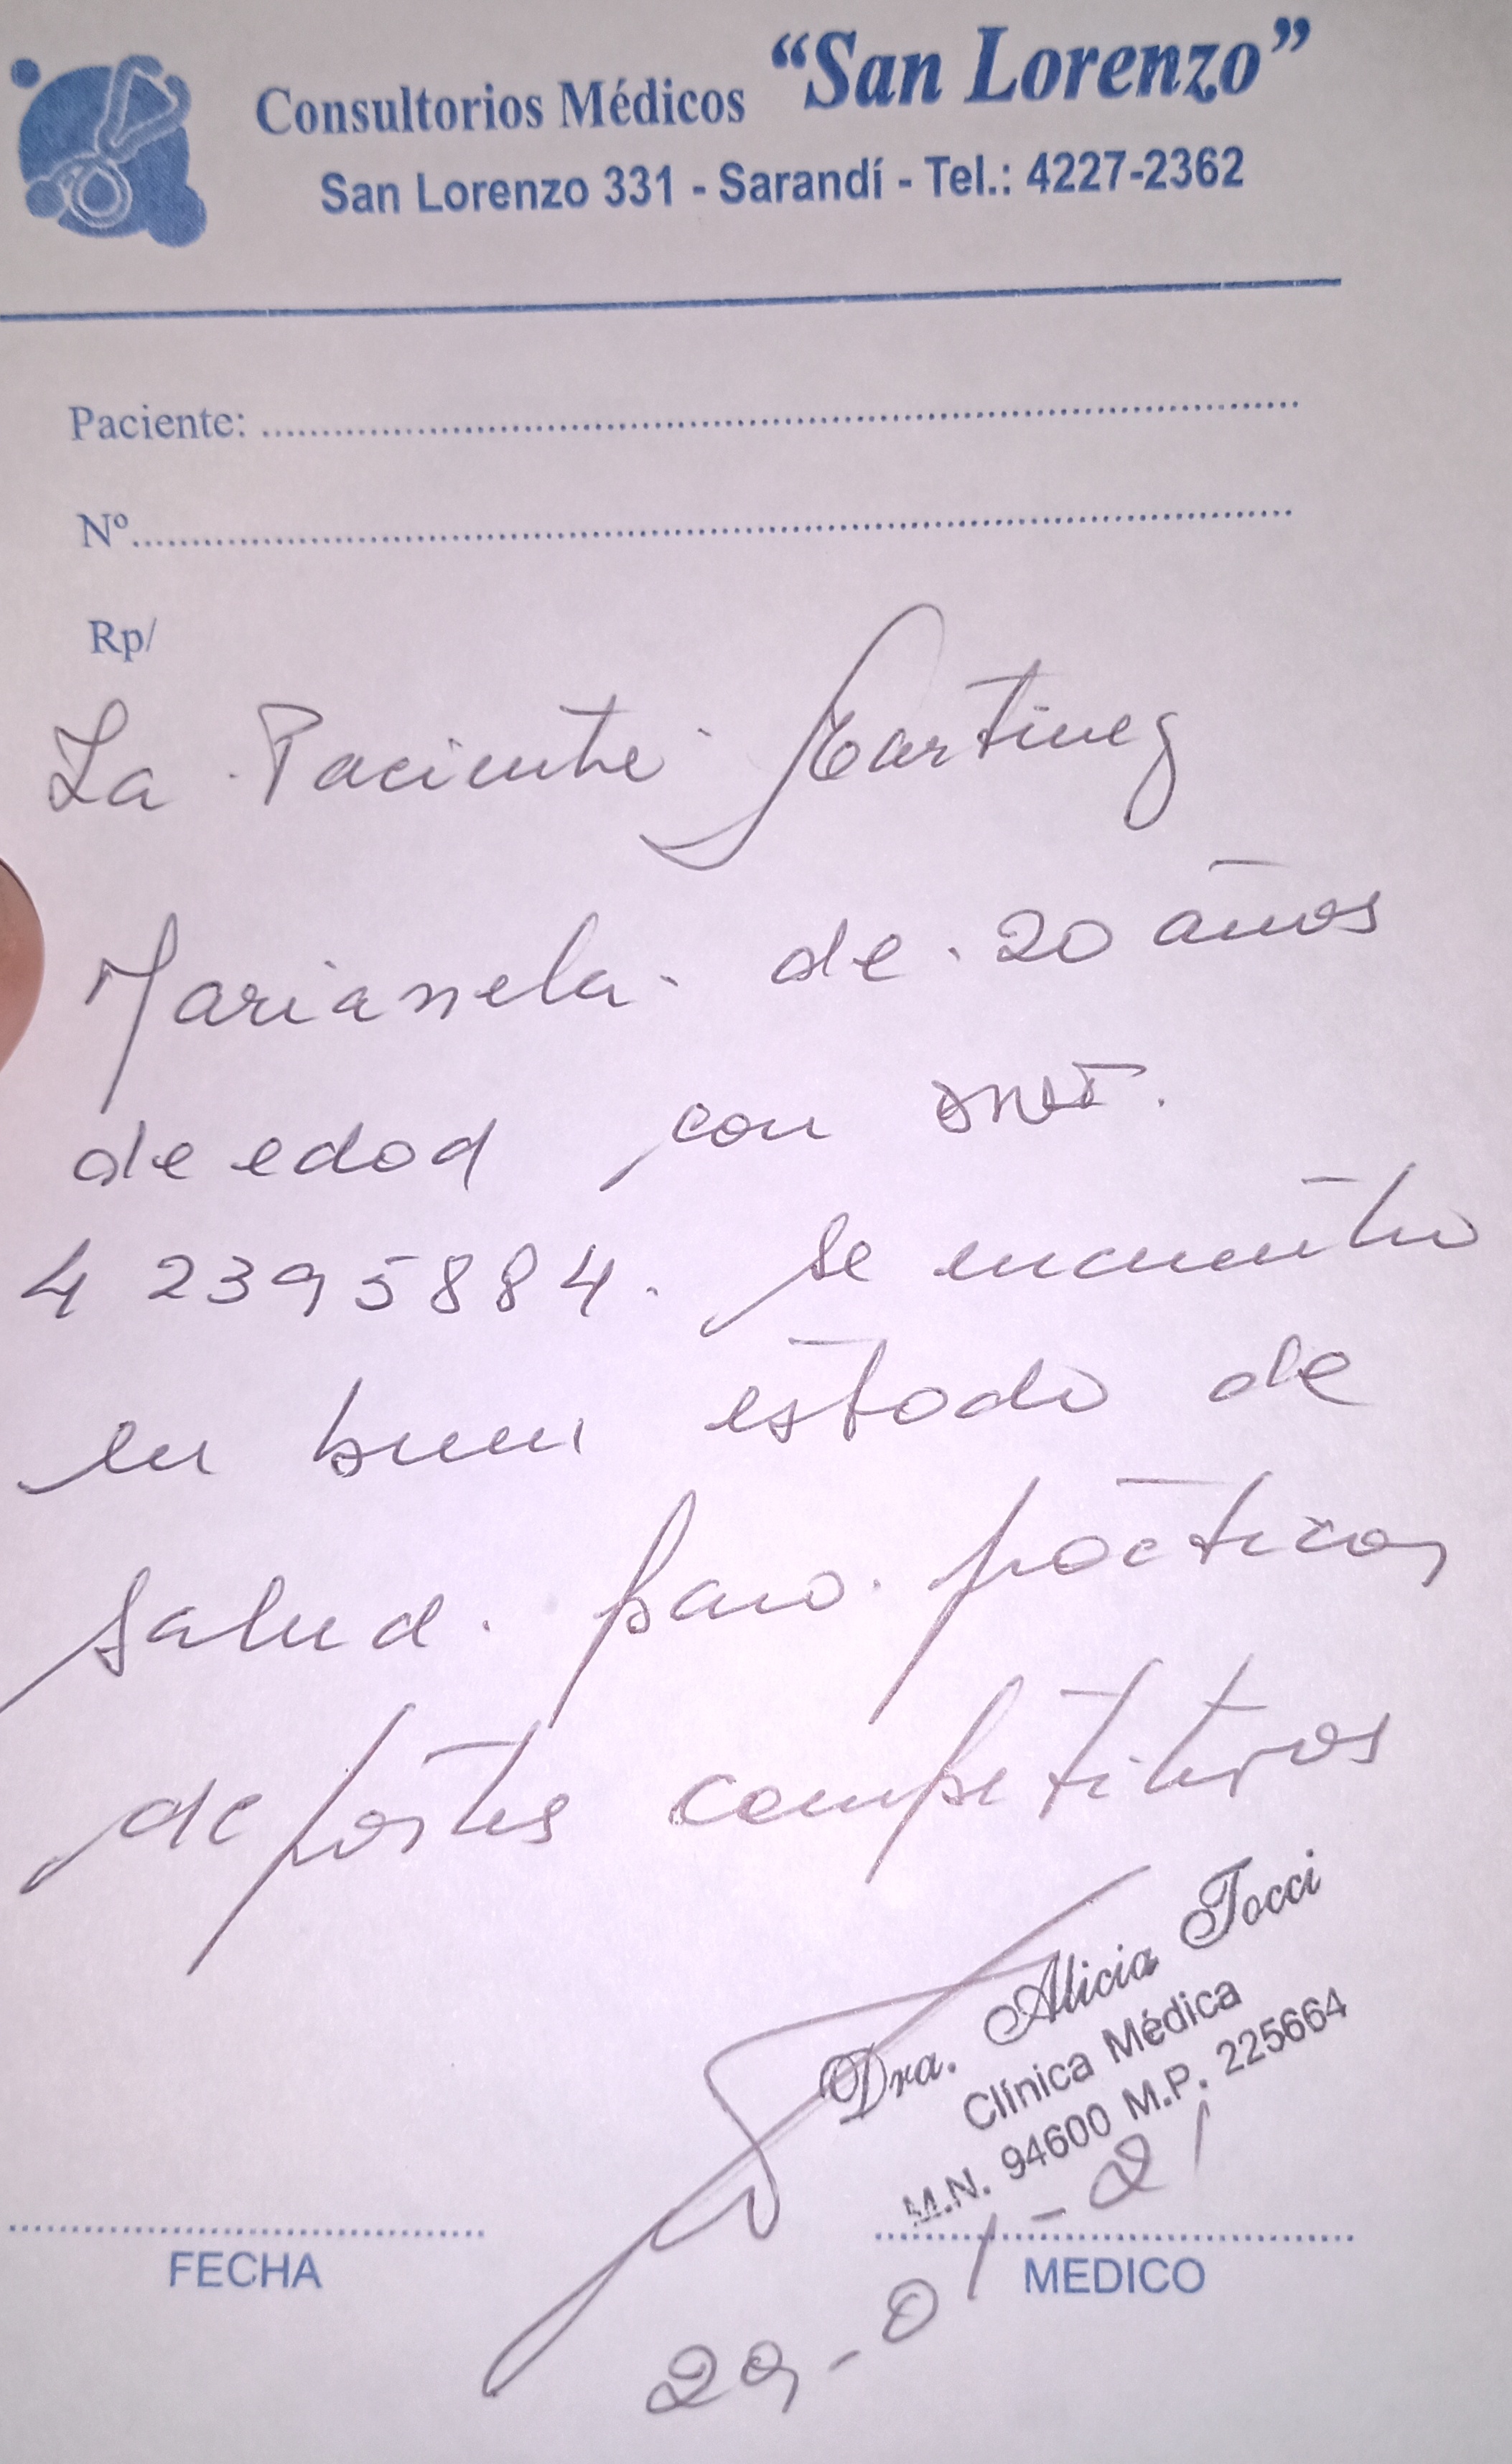 Consultorios Médicos "San Lorenzo"
San Lorenzo 331 - Sarandí - Tel.: 4227-2362
Paciente:
Nº
Rp/
La Paciente Martinez
Marianela de 20 años
de edad con DNI.
42395884. se encuentra
en buen estado de
salud. para practicar
deportes competitivos
Dra. Alicia Tocci
Clínica Médica
M.N. 94600 M.P. 225664
29-01-21
FECHA
MEDICO